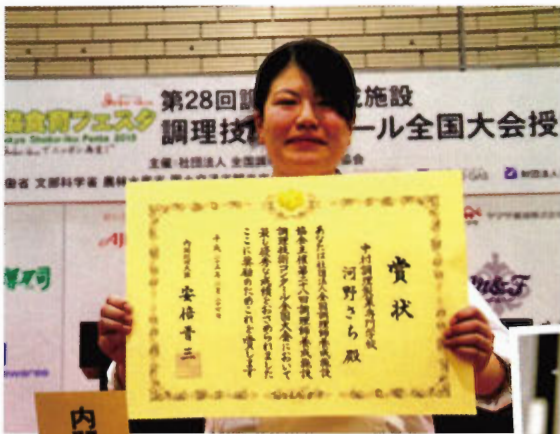 第28回調
成施設
調理技
ール全国大会授
食育フェスタ
主催:社団法人 全国調
協会
文部科学省 農林水産省
賞状
中村調理製菓専門学校
河野さち 殿
あなたは社団法人全国調理師養成施設
協会主催第二十八回調理師養成施設
調理技術コンクール全国大会において
最も優秀な成績をおさめられました
ここに奨励のためこれを賞します
平成二十五年二月
内閣総理大臣 安倍晋三
内